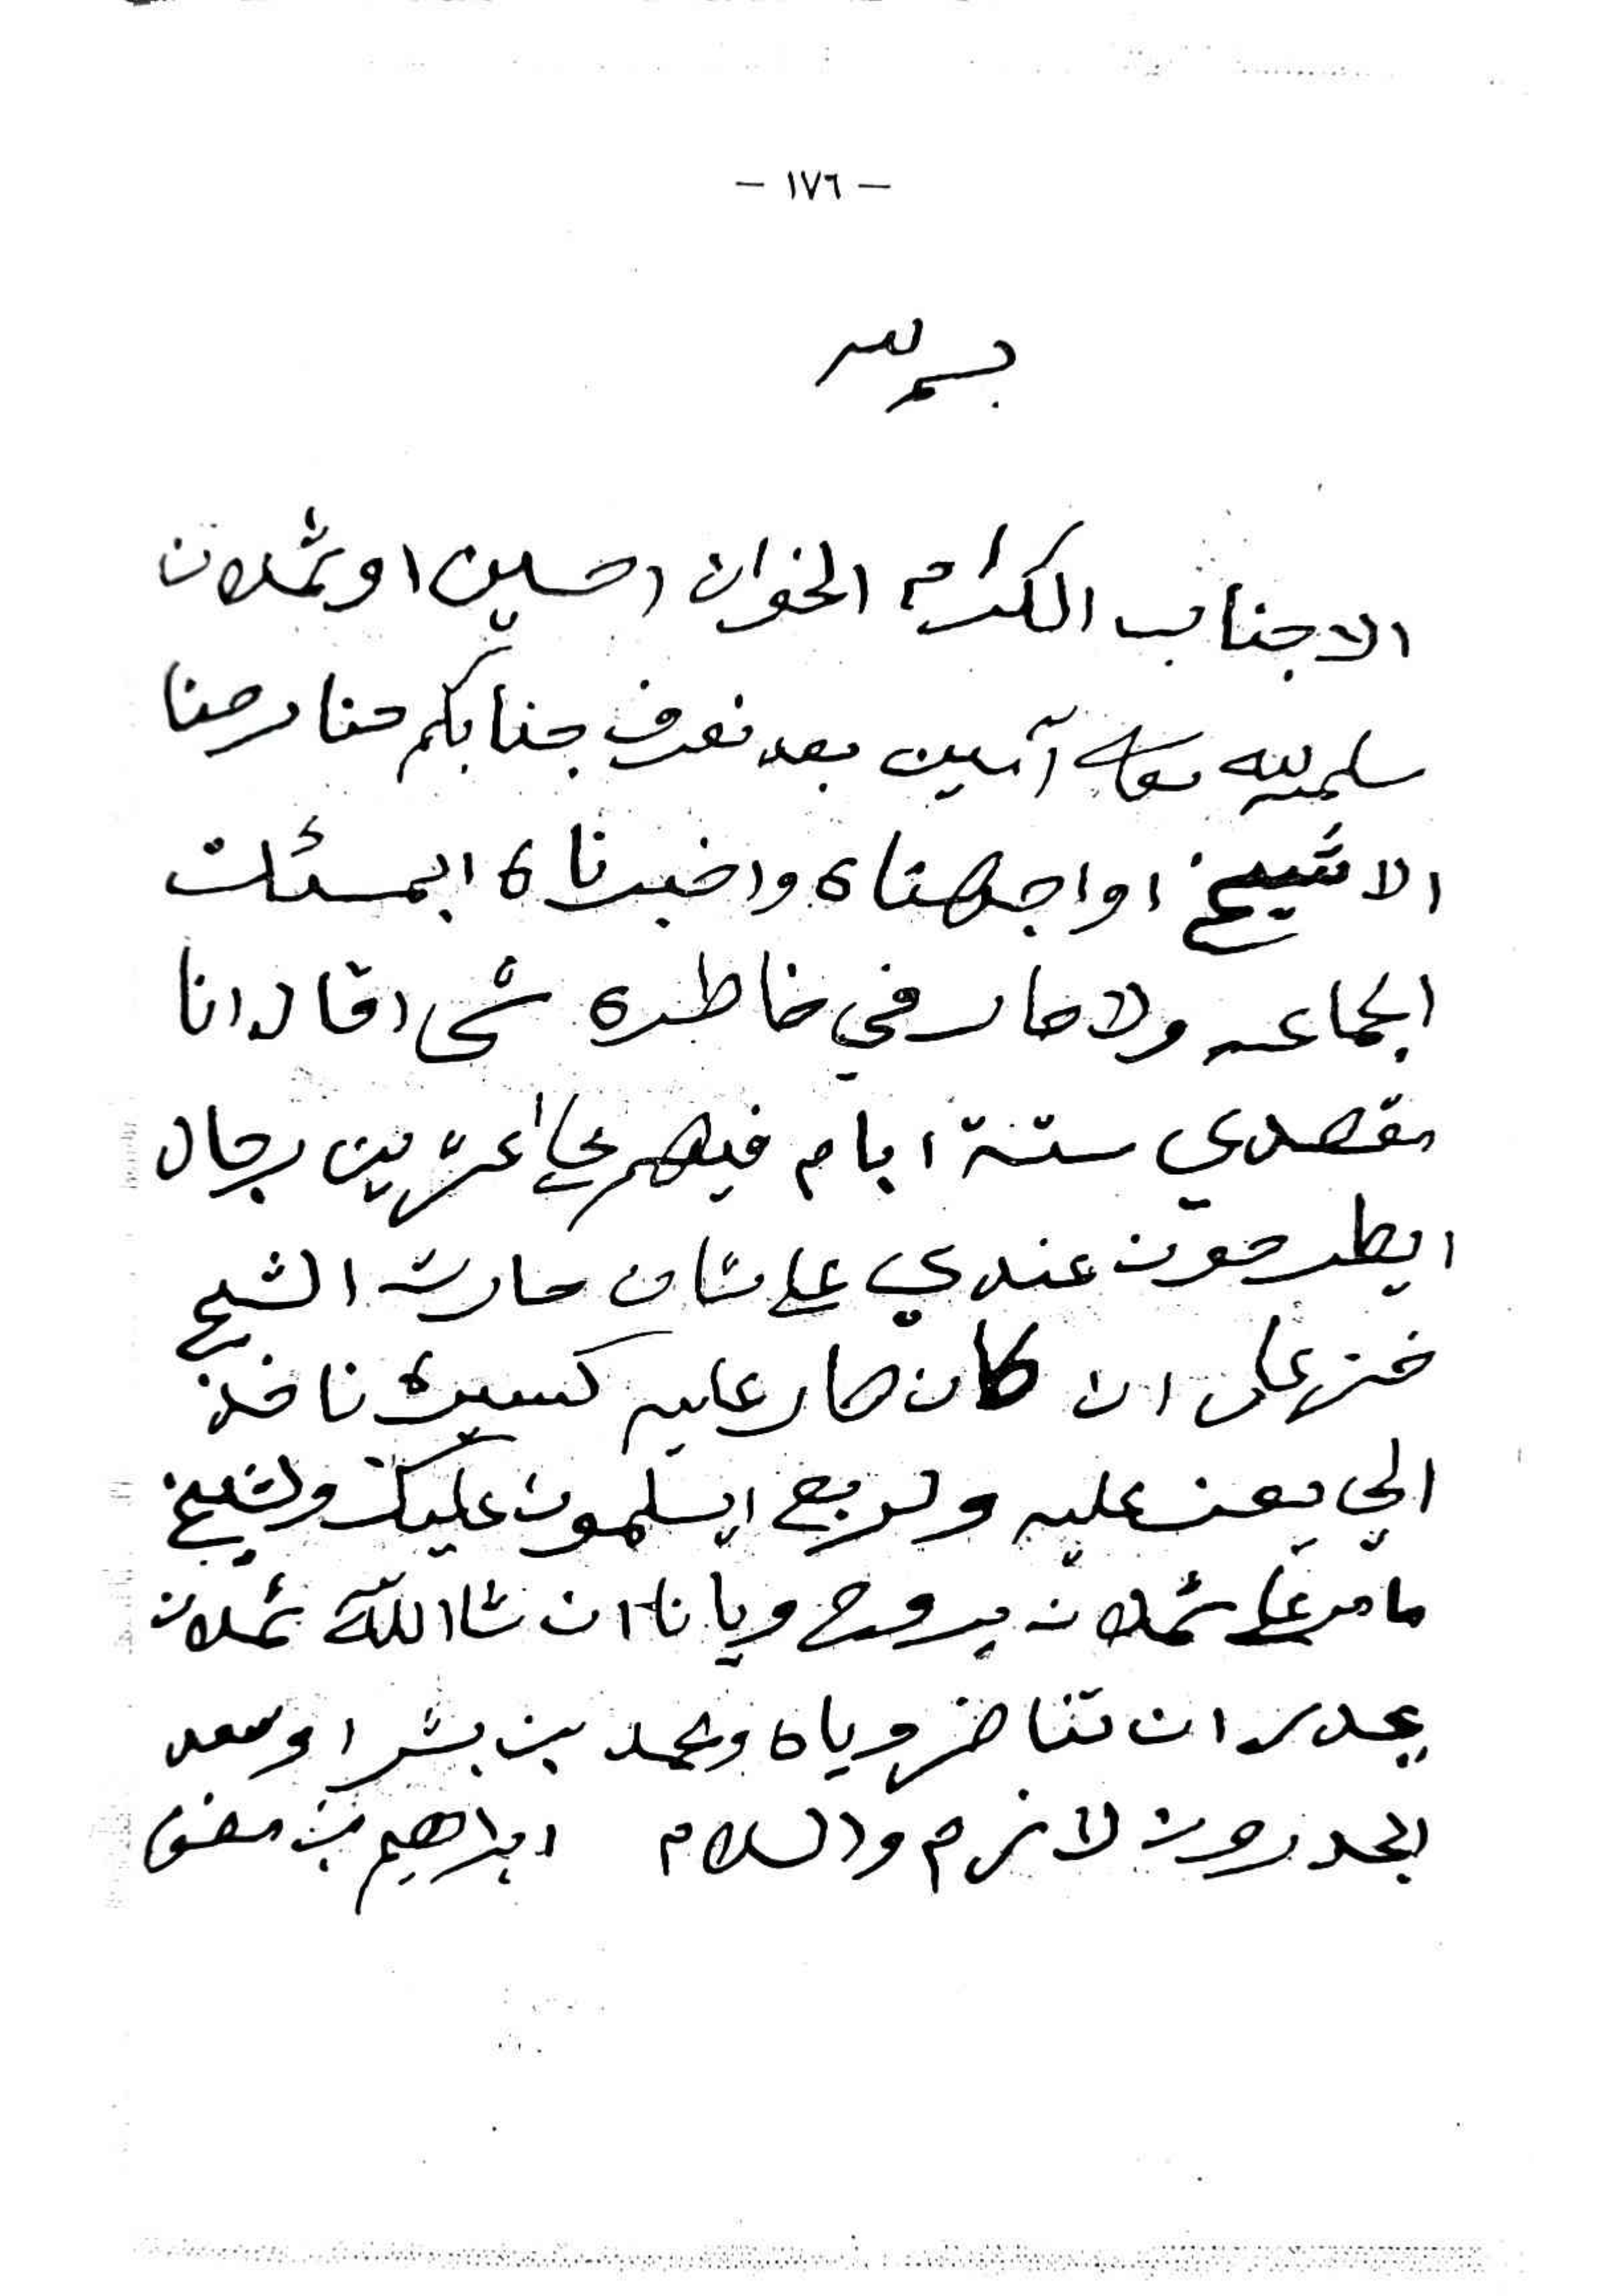 - ١٧٦ -
بسم لله
الاجناب الكرام الخوان احسين او ثملان
سلمه لله تعالى آمين بعد نعرف جنابكم حنا رحنا
الاشيخ اواجهناه واخبرناه ابمسئلت
الجماعه ولا صار في خاطره شي اقال انا
مقصدي ستة ايام فيهم يجي اعزيين رجال
ايطرحون عندي علاشان حارت الشيخ
خزعل ان كان صار عليه كسيره ناخذ
الي يعز عليه ولربع ايسلمون عليك ولشيخ
مامر على ثملان يروح ويانا ان شاالله ثملان
يجدر ان تناخز وياه ومحمد بن بشر اوسعد
ابحدرون لازم والسلام ابراهيم بن